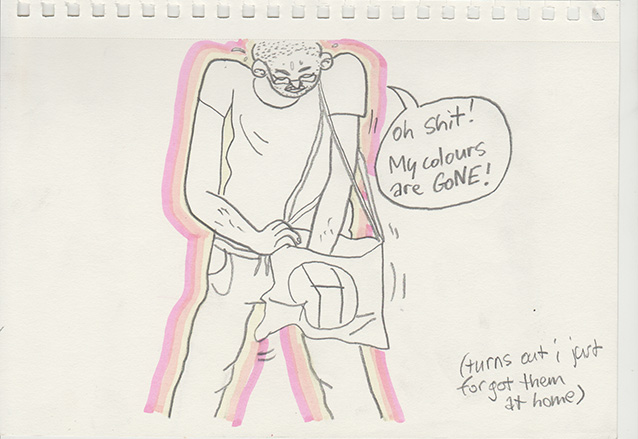 oh shit!
My colours
are GONE!
(turns out i just
forgot them
at home)